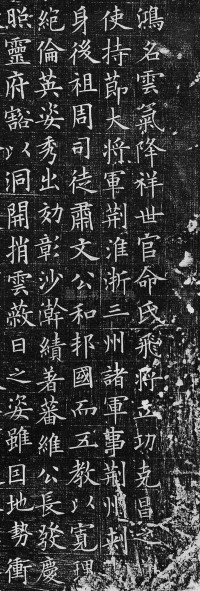 鴻名雲氣降祥世官命氏飛將立功克昌
使持莭大将軍荆淮浙三州諸軍事荆州刺
身後祖周司徒肅文公和邦國而五教以寬理
絶倫英姿秀出効彰沙漠績著蕃維公長發慶
照靈府豁以洞開捎雲蔽日之姿雖因地勢衝